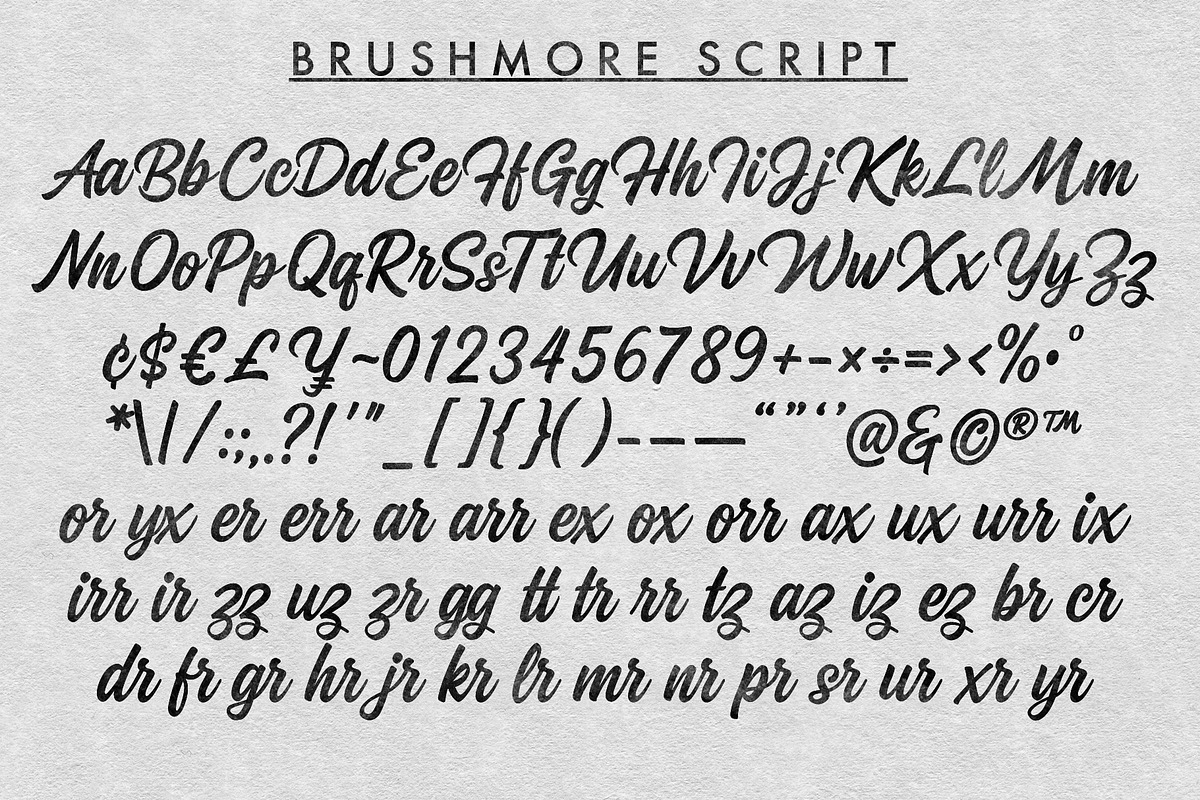 BRUSHMORE SCRIPT
AaBbCcDdEeFfGgHhIiJjKkLlMm
NnOoPpQqRrSsTtUuVvWwXxYyZz
¢$€£¥~0123456789+-×÷=><%•°
*\|/:;,.?!'"_[]{}()-–—“”‘’@&©®™
or yx er err ar arr ex ox orr ax ux urr ix
irr ir zz uz zr gg tt tr rr tz az iz ez br cr
dr fr gr hr jr kr lr mr nr pr sr ur xr yr